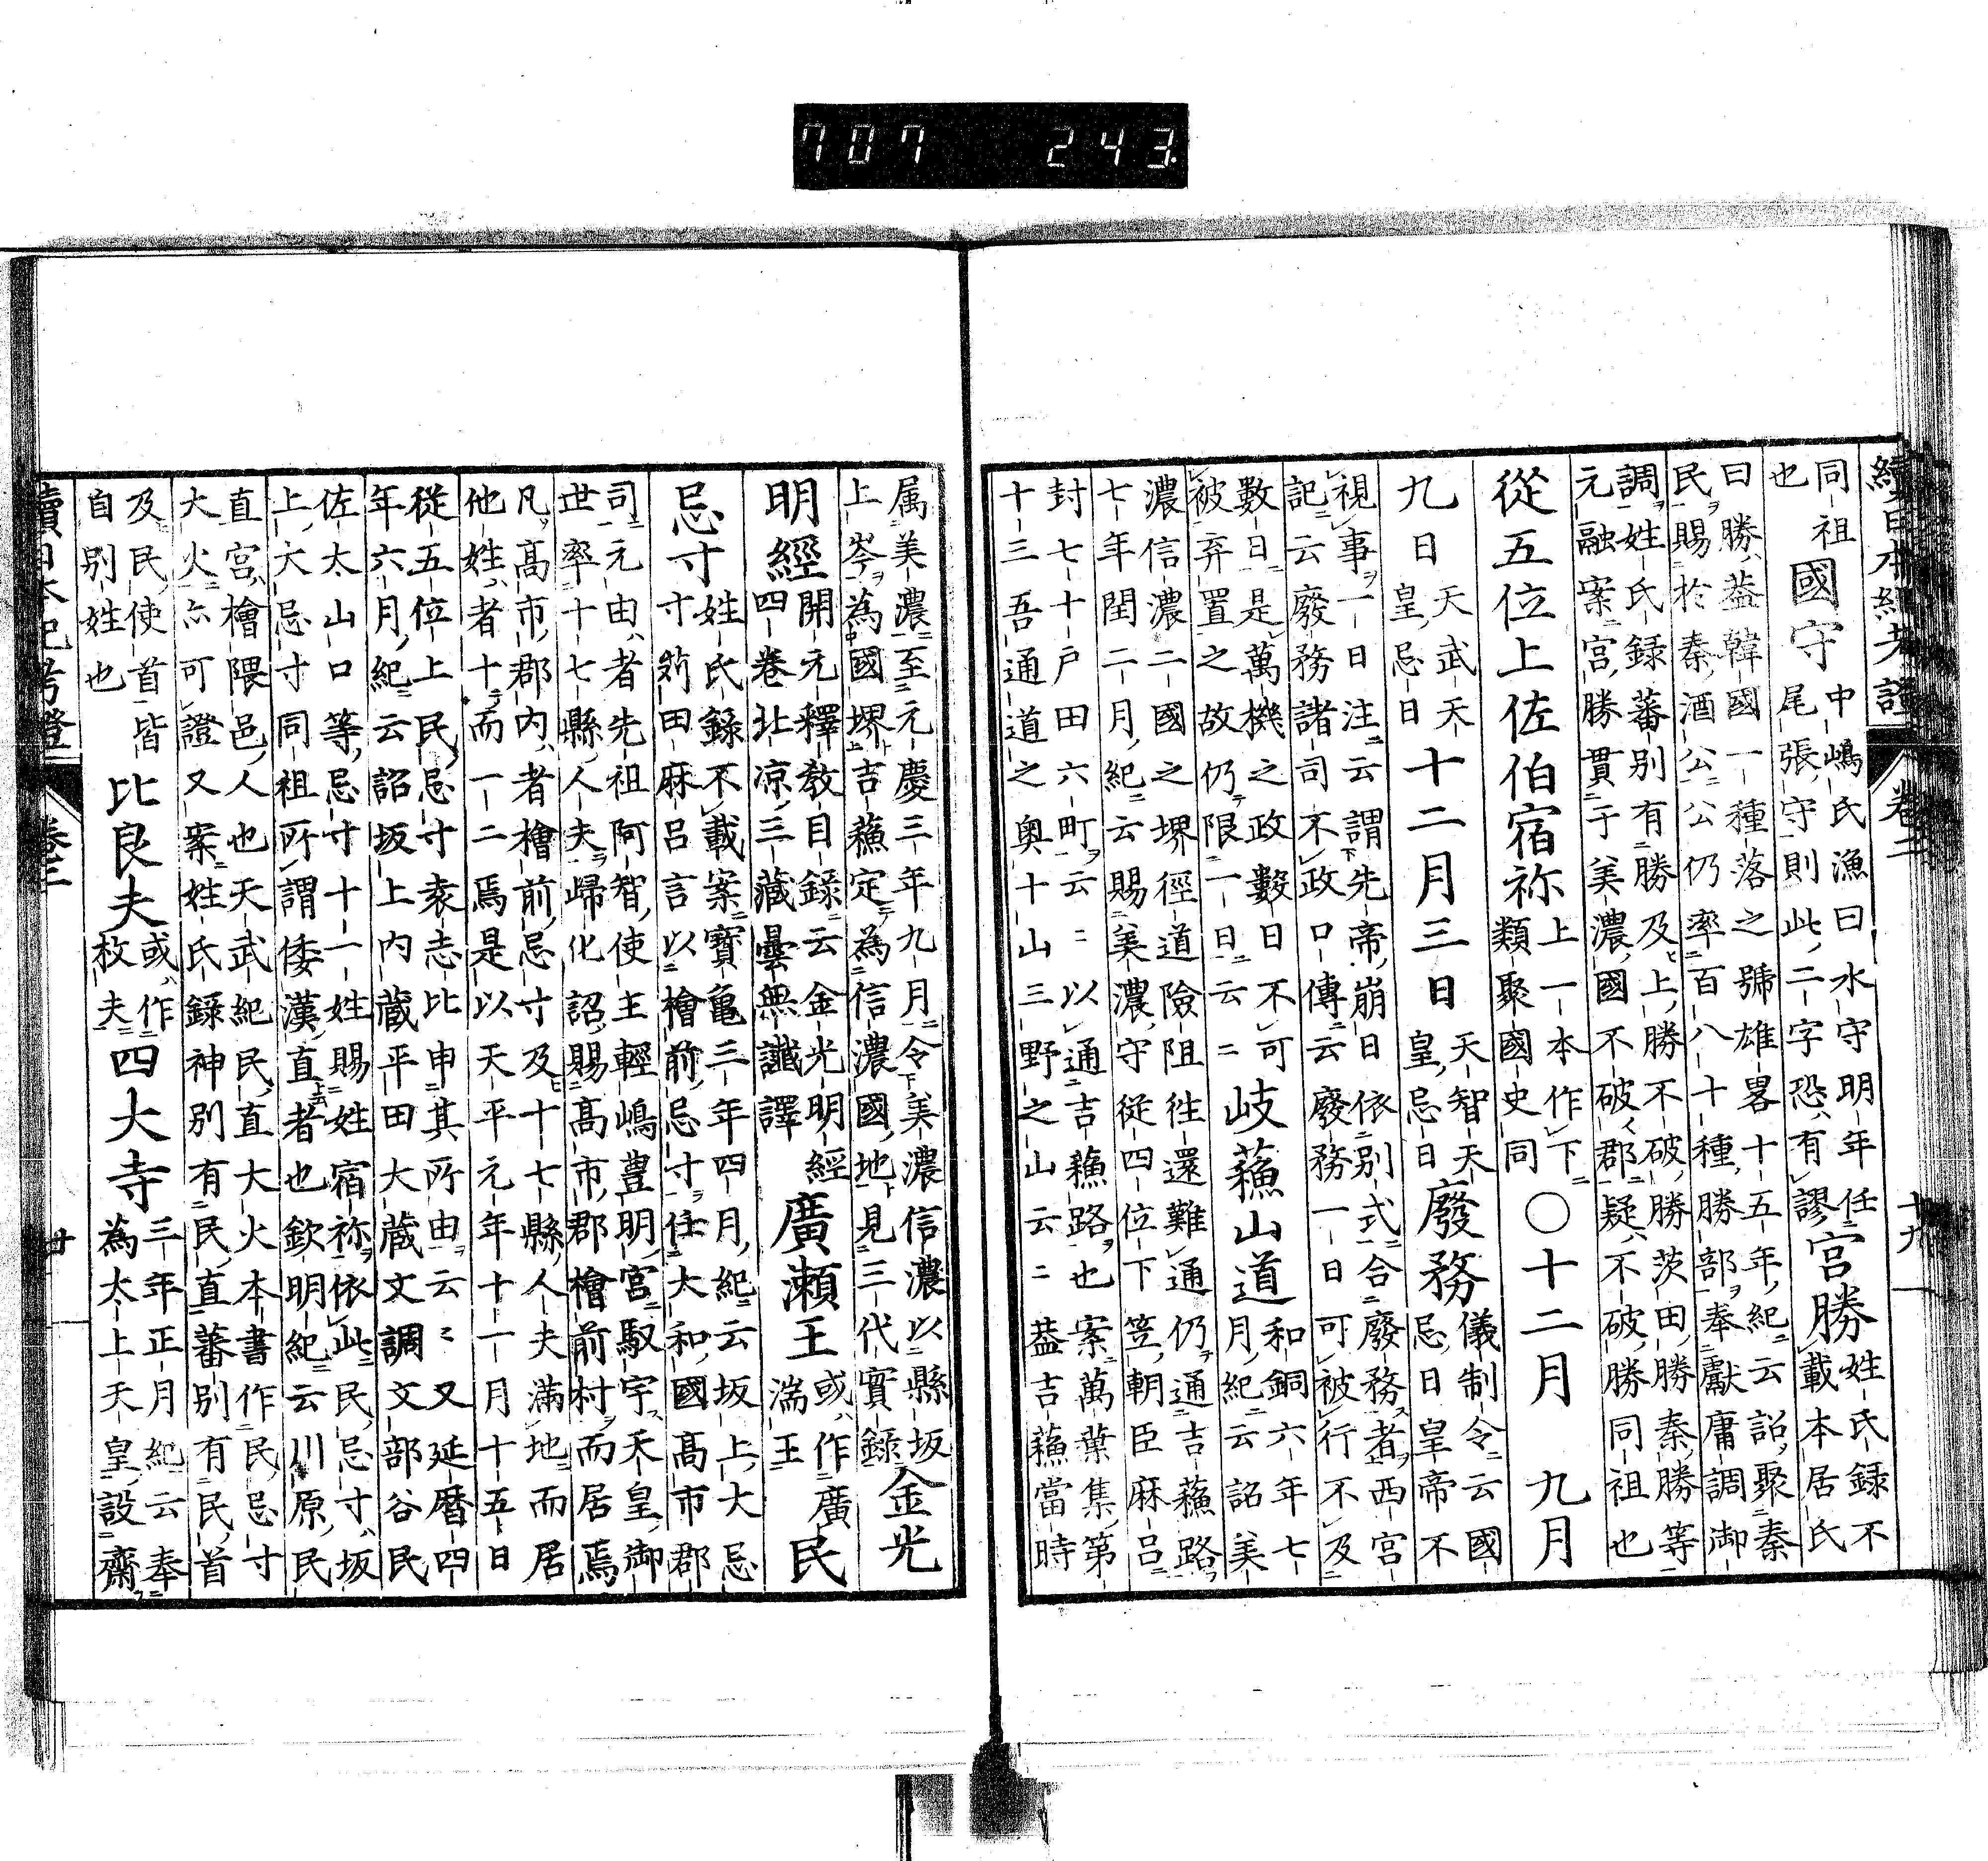 707 243
續日本紀考證 卷三 十九
同祖
也
國守
中嶋氏漁曰水守明年任
尾張守則此二字恐有謬
宮勝
姓氏録不
載本居氏
曰勝葢韓國一種落之號雄畧十五年紀云詔聚秦
民賜於秦酒公公仍率百八十種勝部奉獻庸調御
調姓氏録蕃別有勝及上勝不破勝茨田勝秦勝等
元融案宮勝貫于美濃國不破郡疑不破勝同祖也
從五位上佐伯宿祢
上一本作下
類聚國史同
〇十二月 九月
九日
天武天
皇忌日
十二月三日
天智天
皇忌日
廢務
儀制令云國
忌日皇帝不
視事一日注云謂先帝崩日依別式合廢務者西宮
記云廢務諸司不政口傳云廢務一日可被行不及
數日是萬機之政數日不可
被弃置之故仍限一日云〻
岐蘓山道
和銅六年七
月紀云詔美
濃信濃二國之堺徑道險阻往還難通仍通吉蘓路
七年閏二月紀云賜美濃守從四位下笠朝臣麻呂
封七十戸田六町云〻以通吉蘓路也案萬葉集第
十三吾通道之奥十山三野之山云〻葢吉蘓當時
属美濃至元慶三年九月令美濃信濃以縣坂
上岑為國堺吉蘓定為信濃國地見三代實録
金光
明經
開元釋教目録云金光明經
四卷北凉三藏曇無讖譯
廣瀬王
或作廣
湍王
民
忌寸
姓氏録不載案寶亀三年四月紀云坂上大忌
寸苅田麻呂言以檜前忌寸任大和國髙市郡
司元由者先祖阿智使主輕嶋豊明宮馭宇天皇御
世率十七縣人夫歸化詔賜髙市郡檜前村而居焉
凡髙市郡内者檜前忌寸及十七縣人夫滿地而居
他姓者十而一二焉是以天平元年十一月十五日
從五位上民忌寸袁志比申其所由云〻又延暦四
年六月紀云詔坂上内藏平田大藏文調文部谷民
佐太山口等忌寸十一姓賜姓宿祢依此民忌寸坂
上大忌寸同祖所謂倭漢直者也欽明紀云川原民
直宮檜隈邑人也天武紀民直大火本書作民忌寸
大火亦可證又案姓氏録神別有民直蕃別有民首
及民使首皆
自別姓也
比良夫
或作
枚夫
四大寺
三年正月紀云奉
為太上天皇設齋
續日本紀考證 卷三 廿